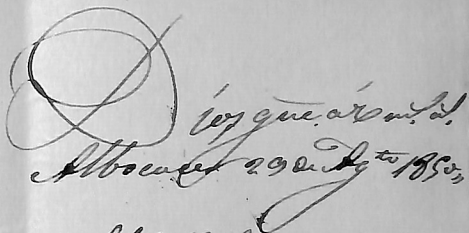 Dios gue. á V. m.s a.s
Albocacer 29 de Agto. 1850,,